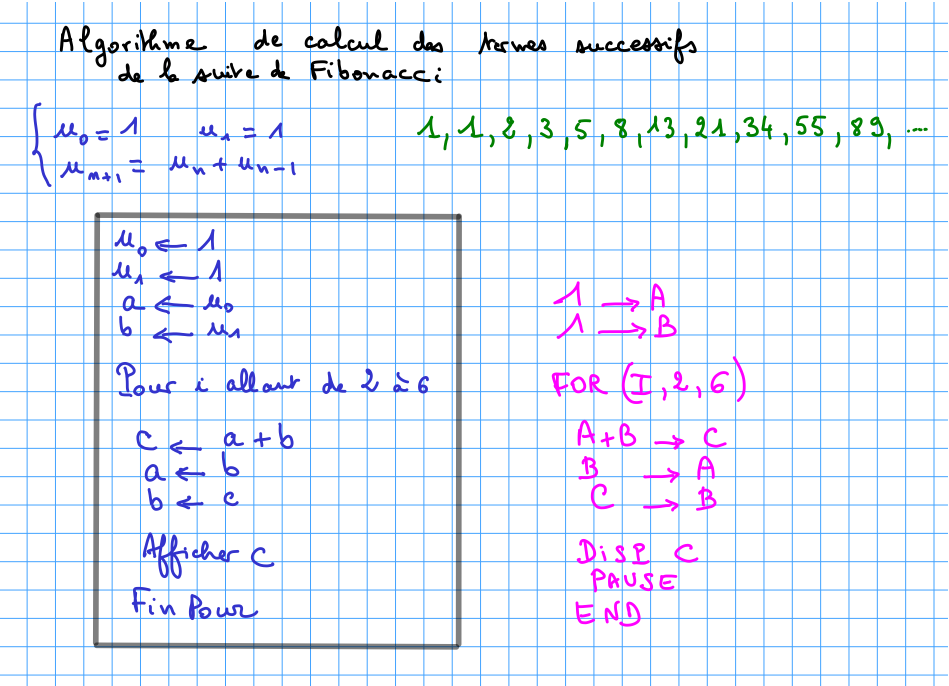 Algorithme de calcul des termes successifs
de la suite de Fibonacci
u₀ = 1 u₁ = 1
uₙ₊₁ = uₙ + uₙ₋₁
1, 1, 2, 3, 5, 8, 13, 21, 34, 55, 89, ...
u₀ ← 1
u₁ ← 1
a ← u₀
b ← u₁
Pour i allant de 2 à 6
c ← a + b
a ← b
b ← c
Afficher C
Fin Pour
1 → A
1 → B
FOR (I, 2, 6)
A+B → C
B → A
C → B
DISP C
PAUSE
END